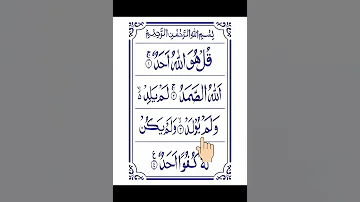 بِسْمِ اللهِ الرَّحْمٰنِ الرَّحِيْمِ
قُلْ هُوَ اللهُ اَحَدٌ ۚ﴿۱﴾
اَللهُ الصَّمَدُ ۚ﴿۲﴾ لَمْ يَلِدْ ۙ
وَلَمْ يُوْلَدْ ۙ﴿۳﴾ وَلَمْ يَكُنْ
لَّهٗ كُفُوًا اَحَدٌ ۧ﴿۴﴾